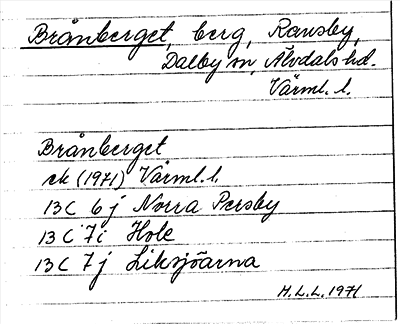 Brånberget, berg, Ransby,
Dalby sn, Älvdals hd.
Värml. l.
Brånberget
ek (1971) Värml. l.
13 C 6 j Norra Persby
13 C 7 i Hole
13 C 7 j Liksjöarna
M.L.L. 1971